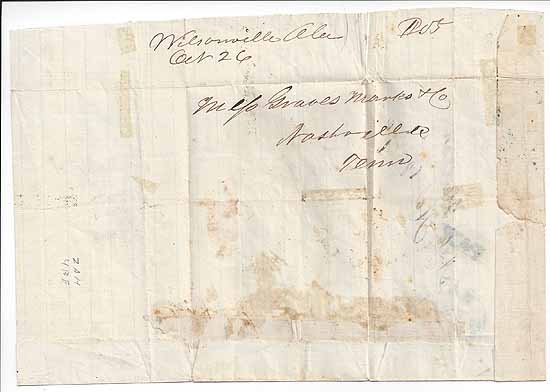 Wilsonville Ala
Oct 26
Messrs Graves Marks & Co
Nashville
Tenn